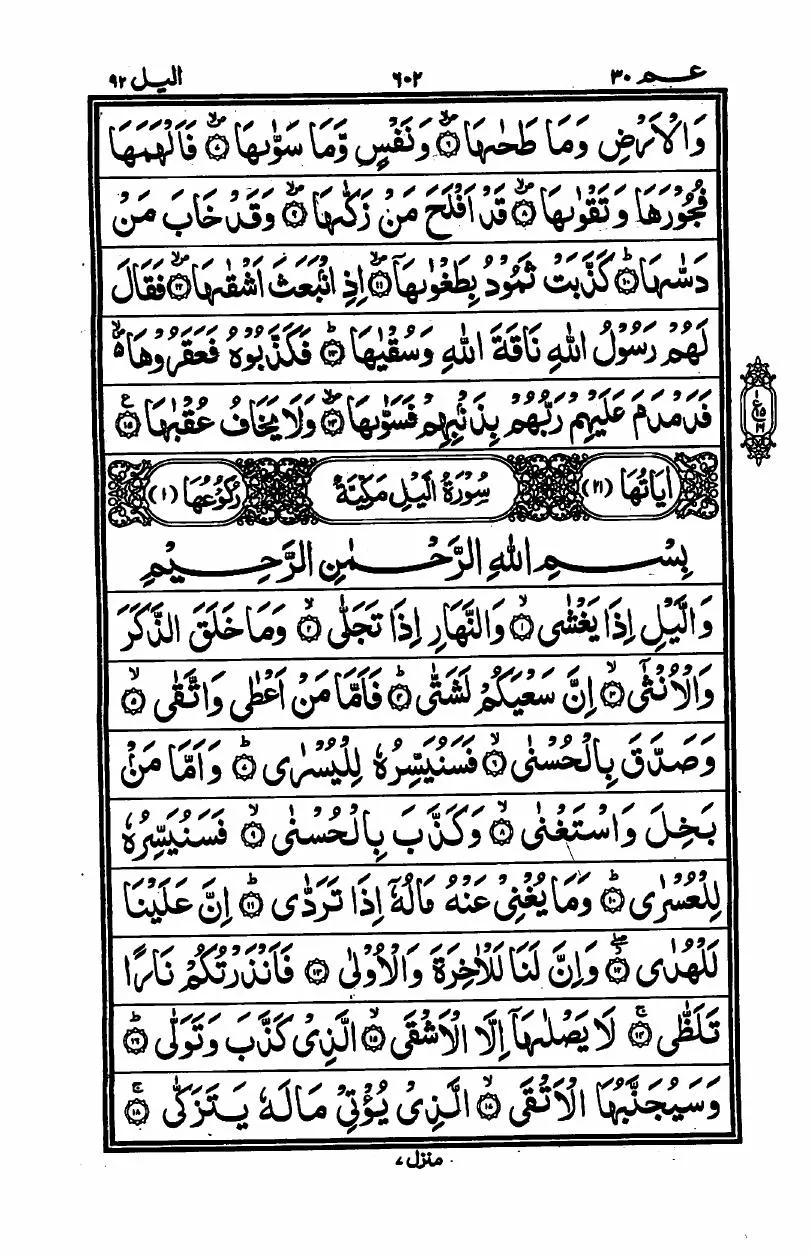 عـم ٣٠ ٦٠٢ اليل ٩٢
وَالْاَرْضِ وَمَا طَحٰىهَا ۪ۙ ۝٦ وَنَفْسٍ وَّمَا سَوّٰىهَا ۪ۙ ۝٧ فَاَلْهَمَهَا
فُجُوْرَهَا وَتَقْوٰىهَا ۪ۙ ۝٨ قَدْ اَفْلَحَ مَنْ زَكّٰىهَا ۪ۙ ۝٩ وَقَدْ خَابَ مَنْ
دَسّٰىهَا ؕ ۝١٠ كَذَّبَتْ ثَمُوْدُ بِطَغْوٰىهَاۤ ۪ۙ ۝١١ اِذِ انْۢبَعَثَ اَشْقٰىهَا ۪ۙ ۝١٢ فَقَالَ
لَهُمْ رَسُوْلُ اللّٰهِ نَاقَةَ اللّٰهِ وَسُقْيٰهَا ؕ ۝١٣ فَكَذَّبُوْهُ فَعَقَرُوْهَا ۪ۙ۬
فَدَمْدَمَ عَلَيْهِمْ رَبُّهُمْ بِذَنْۢبِهِمْ فَسَوّٰىهَا ۪ۙ ۝١٤ وَلَا يَخَافُ عُقْبٰهَا ۝١٥ ع
١
ع ١٥
١٦
اٰيَاتُهَا (٢١) سُوْرَةُ الَّيْلِ مَكِّيَّةٌ رُكُوْعُهَا (١)
بِسْمِ اللّٰهِ الرَّحْمٰنِ الرَّحِيْمِ
وَالَّيْلِ اِذَا يَغْشٰى ۙ ۝١ وَالنَّهَارِ اِذَا تَجَلّٰى ۙ ۝٢ وَمَا خَلَقَ الذَّكَرَ
وَالْاُنْثٰۤى ۙ ۝٣ اِنَّ سَعْيَكُمْ لَشَتّٰى ؕ ۝٤ فَاَمَّا مَنْ اَعْطٰى وَاتَّقٰى ۙ ۝٥
وَصَدَّقَ بِالْحُسْنٰى ۙ ۝٦ فَسَنُيَسِّرُهٗ لِلْيُسْرٰى ؕ ۝٧ وَاَمَّا مَنْۢ
بَخِلَ وَاسْتَغْنٰى ۙ ۝٨ وَكَذَّبَ بِالْحُسْنٰى ۙ ۝٩ فَسَنُيَسِّرُهٗ
لِلْعُسْرٰى ؕ ۝١٠ وَمَا يُغْنِيْ عَنْهُ مَالُهٗۤ اِذَا تَرَدّٰى ؕ ۝١١ اِنَّ عَلَيْنَا
لَلْهُدٰى ۖؗ ۝١٢ وَاِنَّ لَنَا لَلْاٰخِرَةَ وَالْاُوْلٰى ۝١٣ فَاَنْذَرْتُكُمْ نَارًا
تَلَظّٰى ۚ ۝١٤ لَا يَصْلٰىهَاۤ اِلَّا الْاَشْقَى ۙ ۝١٥ الَّذِيْ كَذَّبَ وَتَوَلّٰى ؕ ۝١٦
وَسَيُجَنَّبُهَا الْاَتْقَى ۙ ۝١٧ الَّذِيْ يُؤْتِيْ مَالَهٗ يَتَزَكّٰى ۚ ۝١٨
منزل ٧